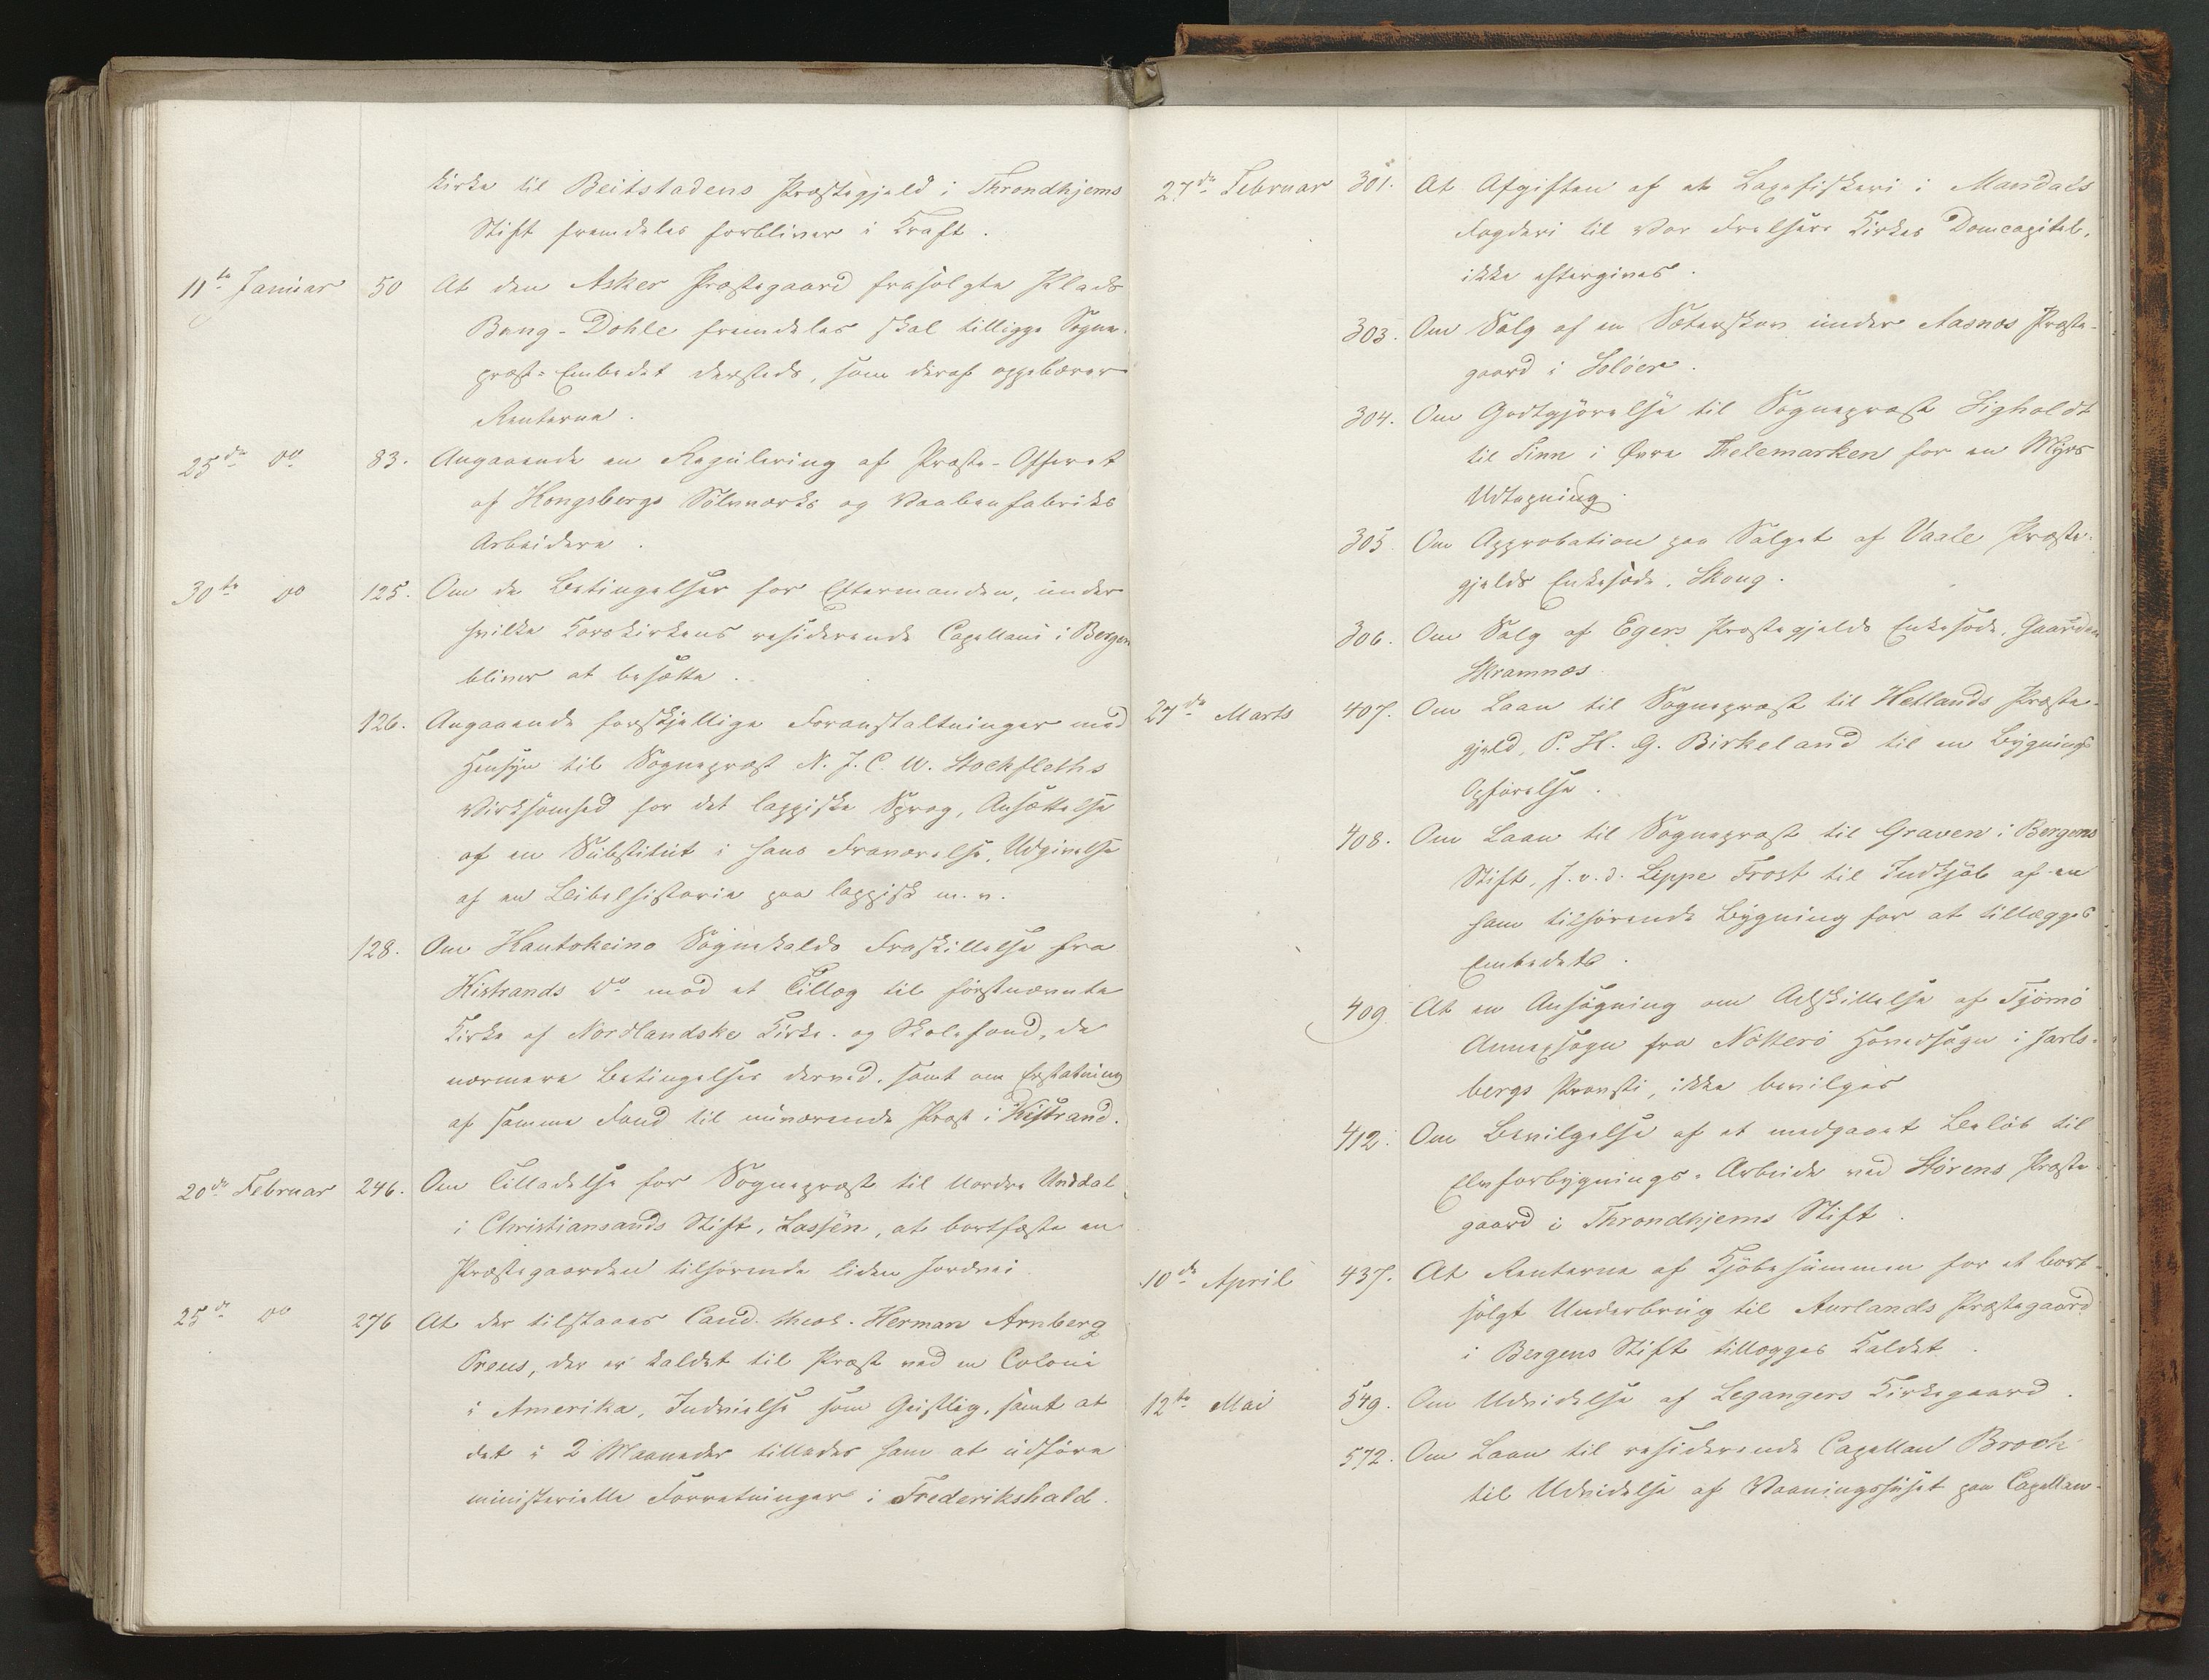 Kirke til Beitstadens Præstegjeld i Throndhjems
Stift fremdeles forbliver i Kraft.
11te Januar 50 At den Asker Præstegaard frasolgte Plads
Bang-Dohle fremdeles skal tilligge Sogne-
præst-Embedet dersteds, som deraf oppebærer
Renterne.
25de do 83. Angaaende en Regulering af Præste-Offeret
af Kongsbergs Sølvværks og Vaabenfabriks
Arbeidere.
30te do 125. Om de Betingelser for Eftermanden, under
hvilke Korskirkens residerende Capellani i Bergen
bliver at besætte.
126. Angaaende forskjellige Foranstaltninger med
Hensyn til Sognepræst N. J. C. W. Stockfleths
Virksomhed for det lappiske Sprog, Ansættelse
af en Substitut i hans Fraværelse, Udgivelse
af en Bibelhistorie paa lappisk m. v.
128. Om Kautokeino Sognekalds Fraskillelse fra
Kistrands do mod et Tillæg til førstnævnte
Kirke af Nordlandske Kirke- og Skolefond, de
nærmere Betingelser derved, samt om Erstatning
af samme Fond til nuværende Præst i Kistrand.
20de Februar 246. Om Tilladelse for Sognepræst til Nordre Unddal
i Christiansands Stift, Lassen, at bortfæste en
Præstegaarden tilhørende liden Jordvei
25de do 276 At der tilstaaes Cand. theol. Herman Arnberg
Preus, der er kaldet til Præst ved en Coloni
i Amerika, Indvielse som Geistlig, samt at
det i 2 Maaneder tillades ham at udføre
ministerielle Forretninger i Frederikshald.
27de Februar 301. At Afgiften af et Laxefiskeri i Mandals
Fogderi til Vor Frelsers Kirkes Domcapitel,
ikke eftergives.
303. Om Salg af en Sæterskov under Aasnæs Præste-
gaard i Soløer.
304. Om Godtgjørelse til Sognepræst Sigholdt
til Tinn i Øvre Thelemarken for en Myrs
Udtapning.
305. Om Approbation paa Salget af Vaale Præste-
gjelds Enkesæde, Skoug.
306. Om Salg af Egers Præstegjelds Enkesæde, Gaarden
Skramnæs.
27de Marts 407. Om Laan til Sognepræst til Hetlands Præste-
gjeld, P. H. G. Birkeland til en Bygnings
Opførelse.
408. Om Laan til Sognepræst til Graven i Bergens
Stift, J. v. d. Lippe Frost til Indkjøb af en
ham tilhørende Bygning for at tillægges
Embedet.
409. At en Ansøgning om Adskillelse af Tjømø
Annexsogn fra Nøtterø Hovedsogn i Jarls-
bergs Provsti, ikke bevilges
412. Om Bevilgelse af et medgaaet Beløb til
Elveforbygnings-Arbeide ved Størens Præste-
gaard i Throndhjems Stift.
10de April 437. At Renterne af Kjøbesummen for et bort-
solgt Underbrug til Aurlands Præstegaard
i Bergens Stift tillægges Kaldet.
12te Mai 549. Om Udvidelse af Legangers Kirkegaard.
572. Om Laan til residerende Capellan Brock
til Udvidelse af Vaaningshuset paa Capellan-